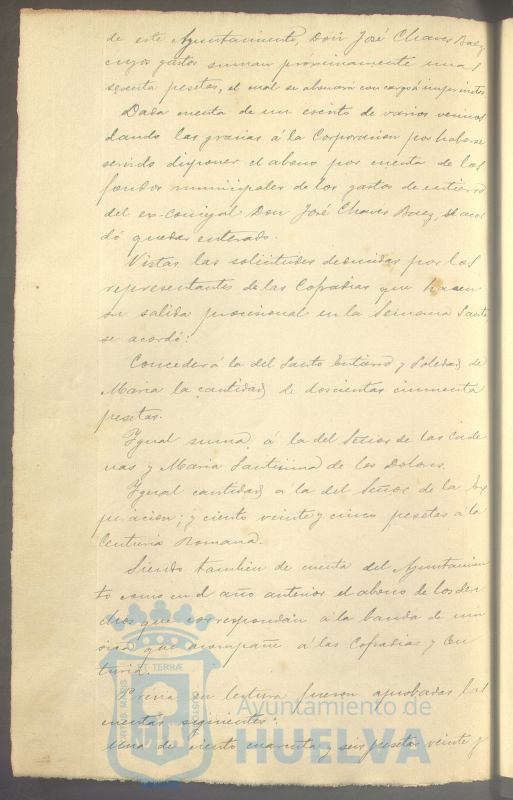 de este Ayuntamiento, Don José Chaves Baez
cuyos gastos suman próximamente unas
sesenta pesetas, el cual se abonará con cargo á imprevistos
Dada cuenta de un escrito de varios vecinos
dando las gracias á la Corporacion por haberse
servido disponer el abono por cuenta de los
fondos municipales de los gastos de entierro
del ex-concejal Don José Chaves Baez, se acor
dó quedar enterado.
Vistas las solicitudes deducidas por los
representantes de las Cofradias que hacen
su salida procesional en la Semana Santa
se acordó:
Conceder á la del Santo Entierro y Soledad de
Maria la cantidad de doscientas cincuenta
pesetas.
Ygual suma á la del Señor de las Cade
nas y Maria Santisima de los Dolores.
Ygual cantidad á la del Señor de la Ex
piracion; y ciento veinte y cinco pesetas á la
Centuria Romana.
Siendo tambien de cuenta del Ayuntamien
to como en el año anterior el abono de los dere
chos que correspondan á la banda de mu
sica que acompañe á las Cofradias y Cen
turia.
Previa su lectura fueron aprobadas las
cuentas siguientes:
Una de ciento cuarenta y seis pesetas veinte y
Ayuntamiento de
HUELVA
PORTUS MARIS ET TERRÆ CUSTODIA